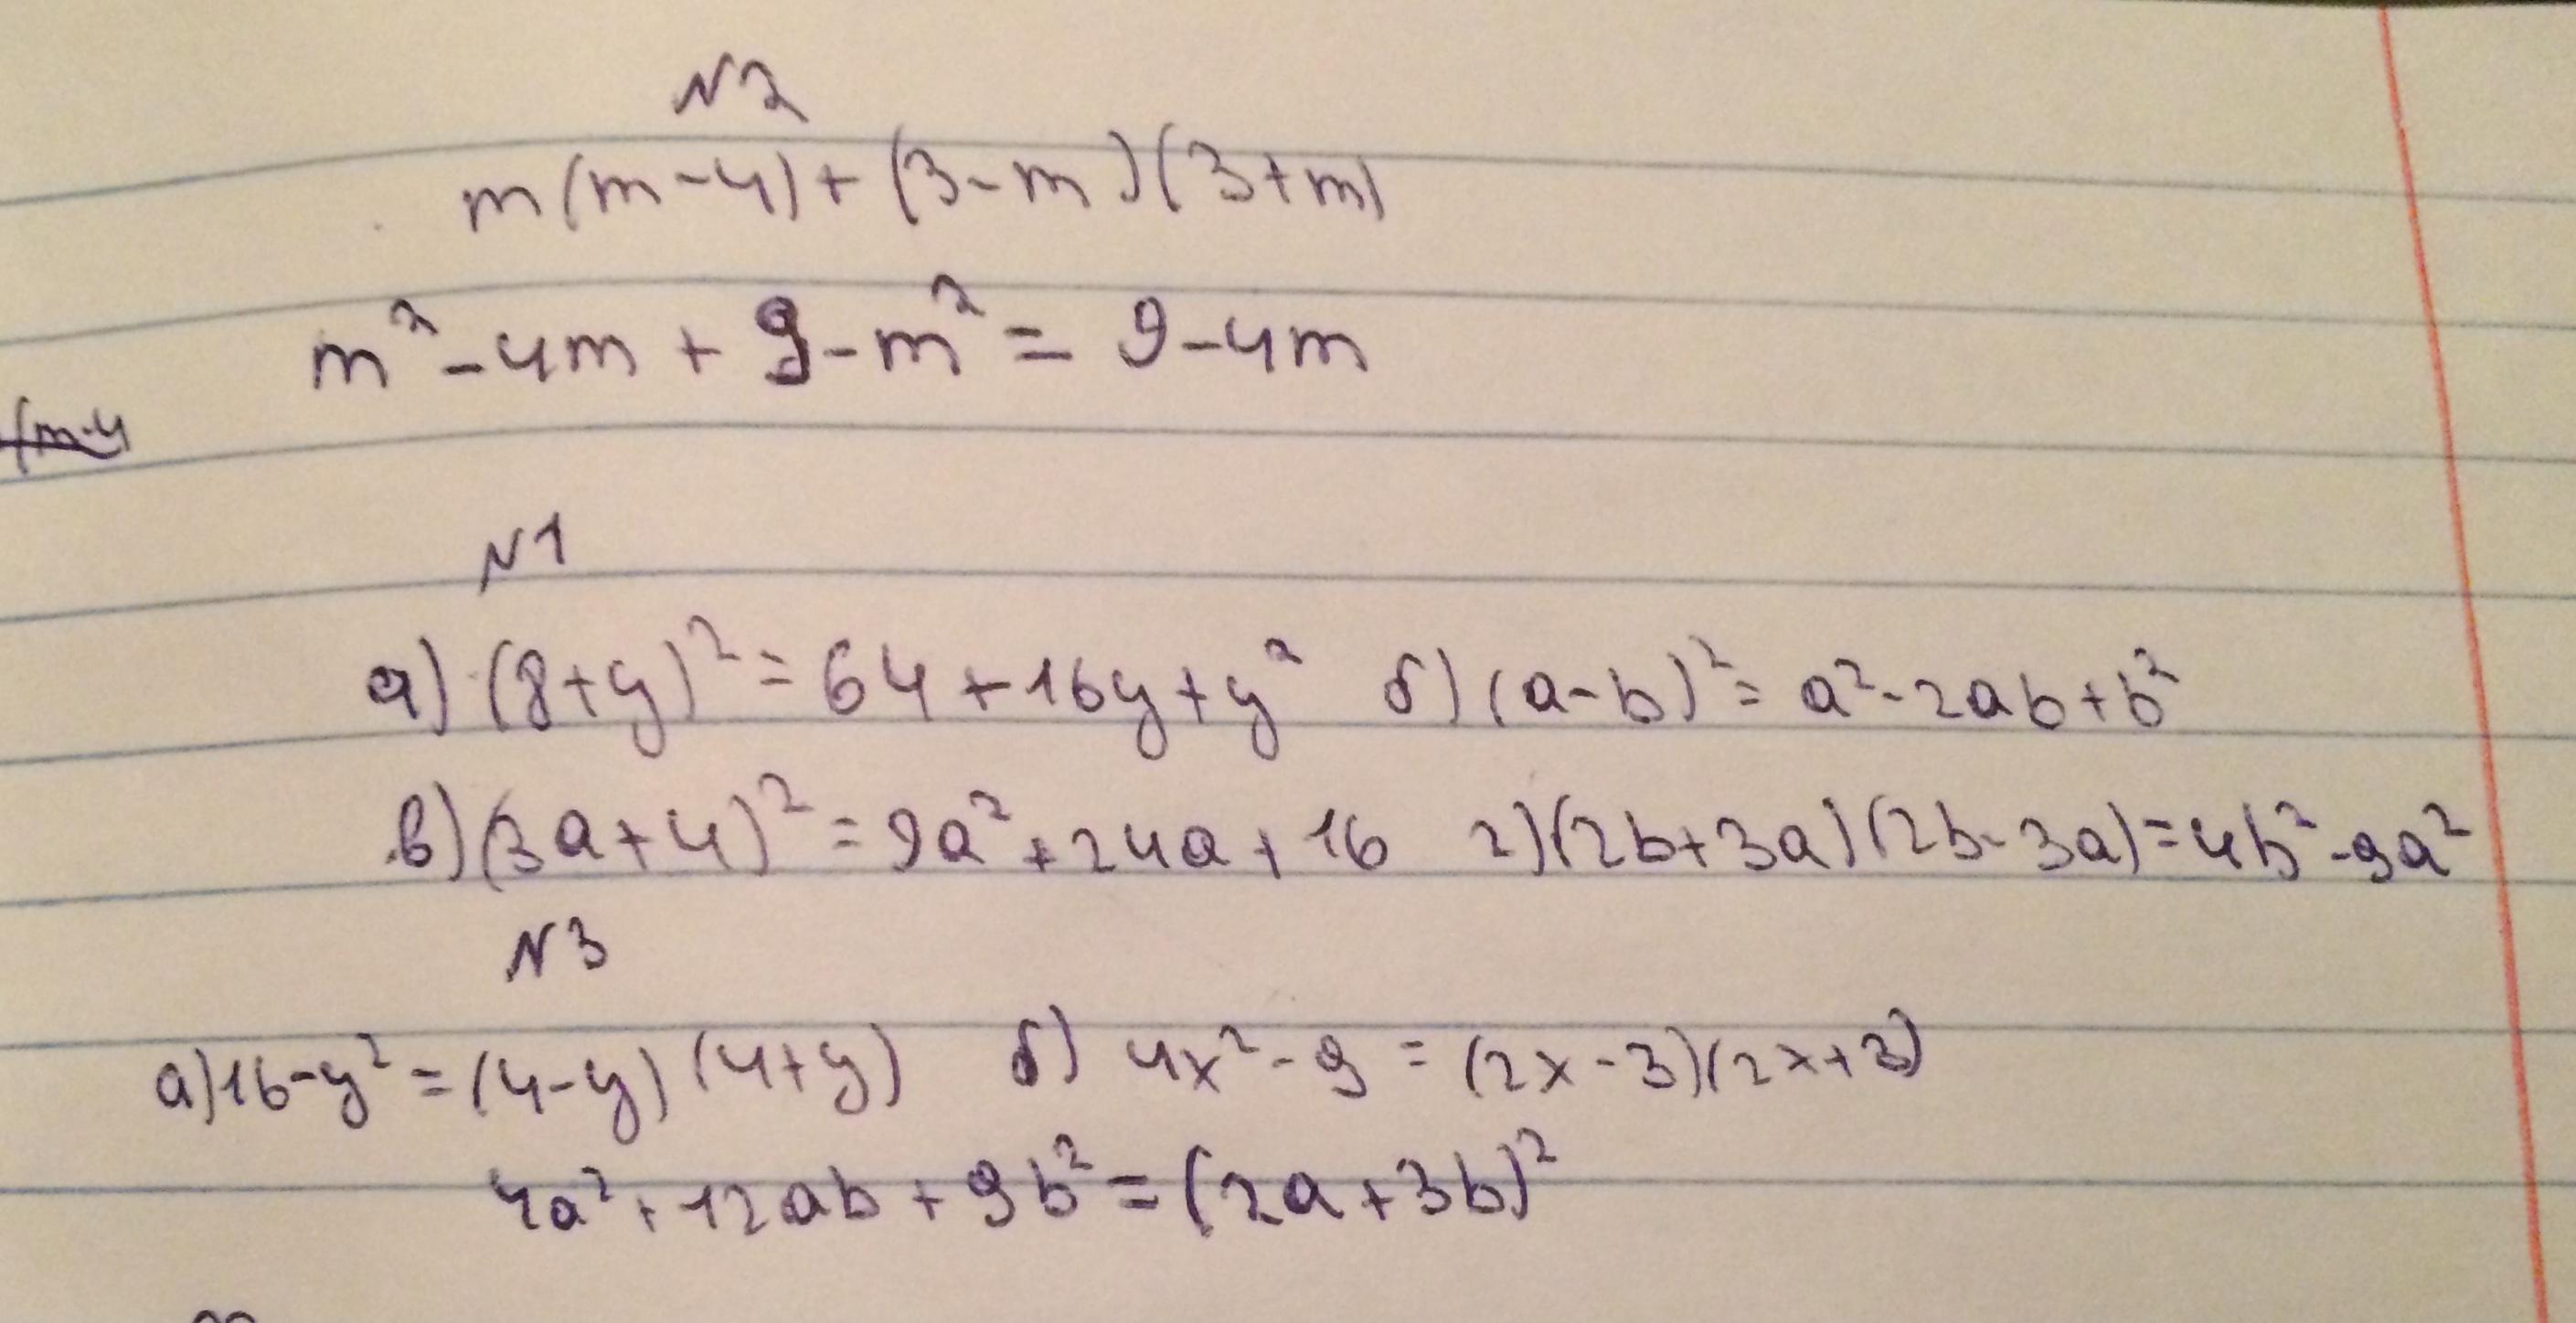 N2
m(m-4)+(3-m)(3+m)
m²-4m+9-m²=9-4m
(m-4
N1
а) (8+y)²=64+16y+y² б) (a-b)²=a²-2ab+b²
в)(3a+4)²=9a²+24a+16 г)(2b+3a)(2b-3a)=4b²-9a²
N3
а)16-y²=(4-y)(4+y) б) 4x²-9=(2x-3)(2x+3)
4a²+12ab+9b²=(2a+3b)²